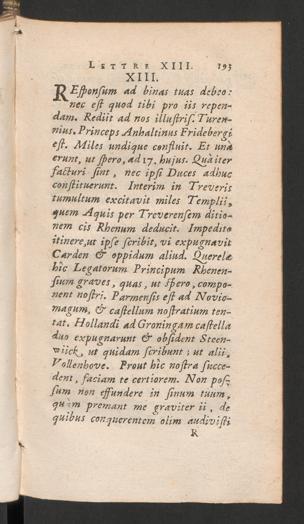 LETTRE XIII. 193
XIII.
REsponsum ad binas tuas debeo:
nec est quod tibi pro iis repen-
dam. Rediit ad nos illustris. Turen-
nius. Princeps Anhaltinus Fridebergi
est. Miles undique confluit. Et unà
erunt, ut spero, ad 17. hujus. Quà iter
facturi sint, nec ipsi Duces adhuc
constituerunt. Interim in Treveris
tumultum excitavit miles Templii,
quem Aquis per Treverensem ditio-
nem cis Rhenum deducit. Impedito
itinere, ut ipse scribit, vi expugnavit
Carden & oppidum aliud. Querelæ
hîc Legatorum Principum Rhenen-
sium graves, quas, ut spero, compo-
nent nostri. Parmensis est ad Novio-
magum, & castellum nostratium ten-
tat. Hollandi ad Groningam castella
duo expugnarunt & obsident Steen-
wiick, ut quidam scribunt; ut alii,
Vollenhove. Prout hîc nostra succe-
dent, faciam te certiorem. Non pos-
sum non effundere in sinum tuum,
quàm premant me graviter ii, de
quibus conquerentem olim audivisti
R